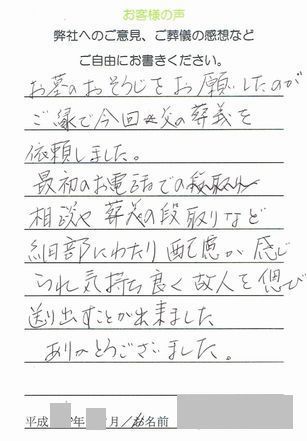 お客様の声
弊社へのご意見、ご葬儀の感想など
ご自由にお書きください。
お墓のおそうじをお願いしたのが
ご縁で今回父の葬義を
依頼しました。
最初のお電話での
相談や葬式の段取りなど
細部にわたり配慮が感じ
られ気持ち良く故人を偲び
送り出すことが出来ました
ありがとうございました。
平成 年 月 お名前